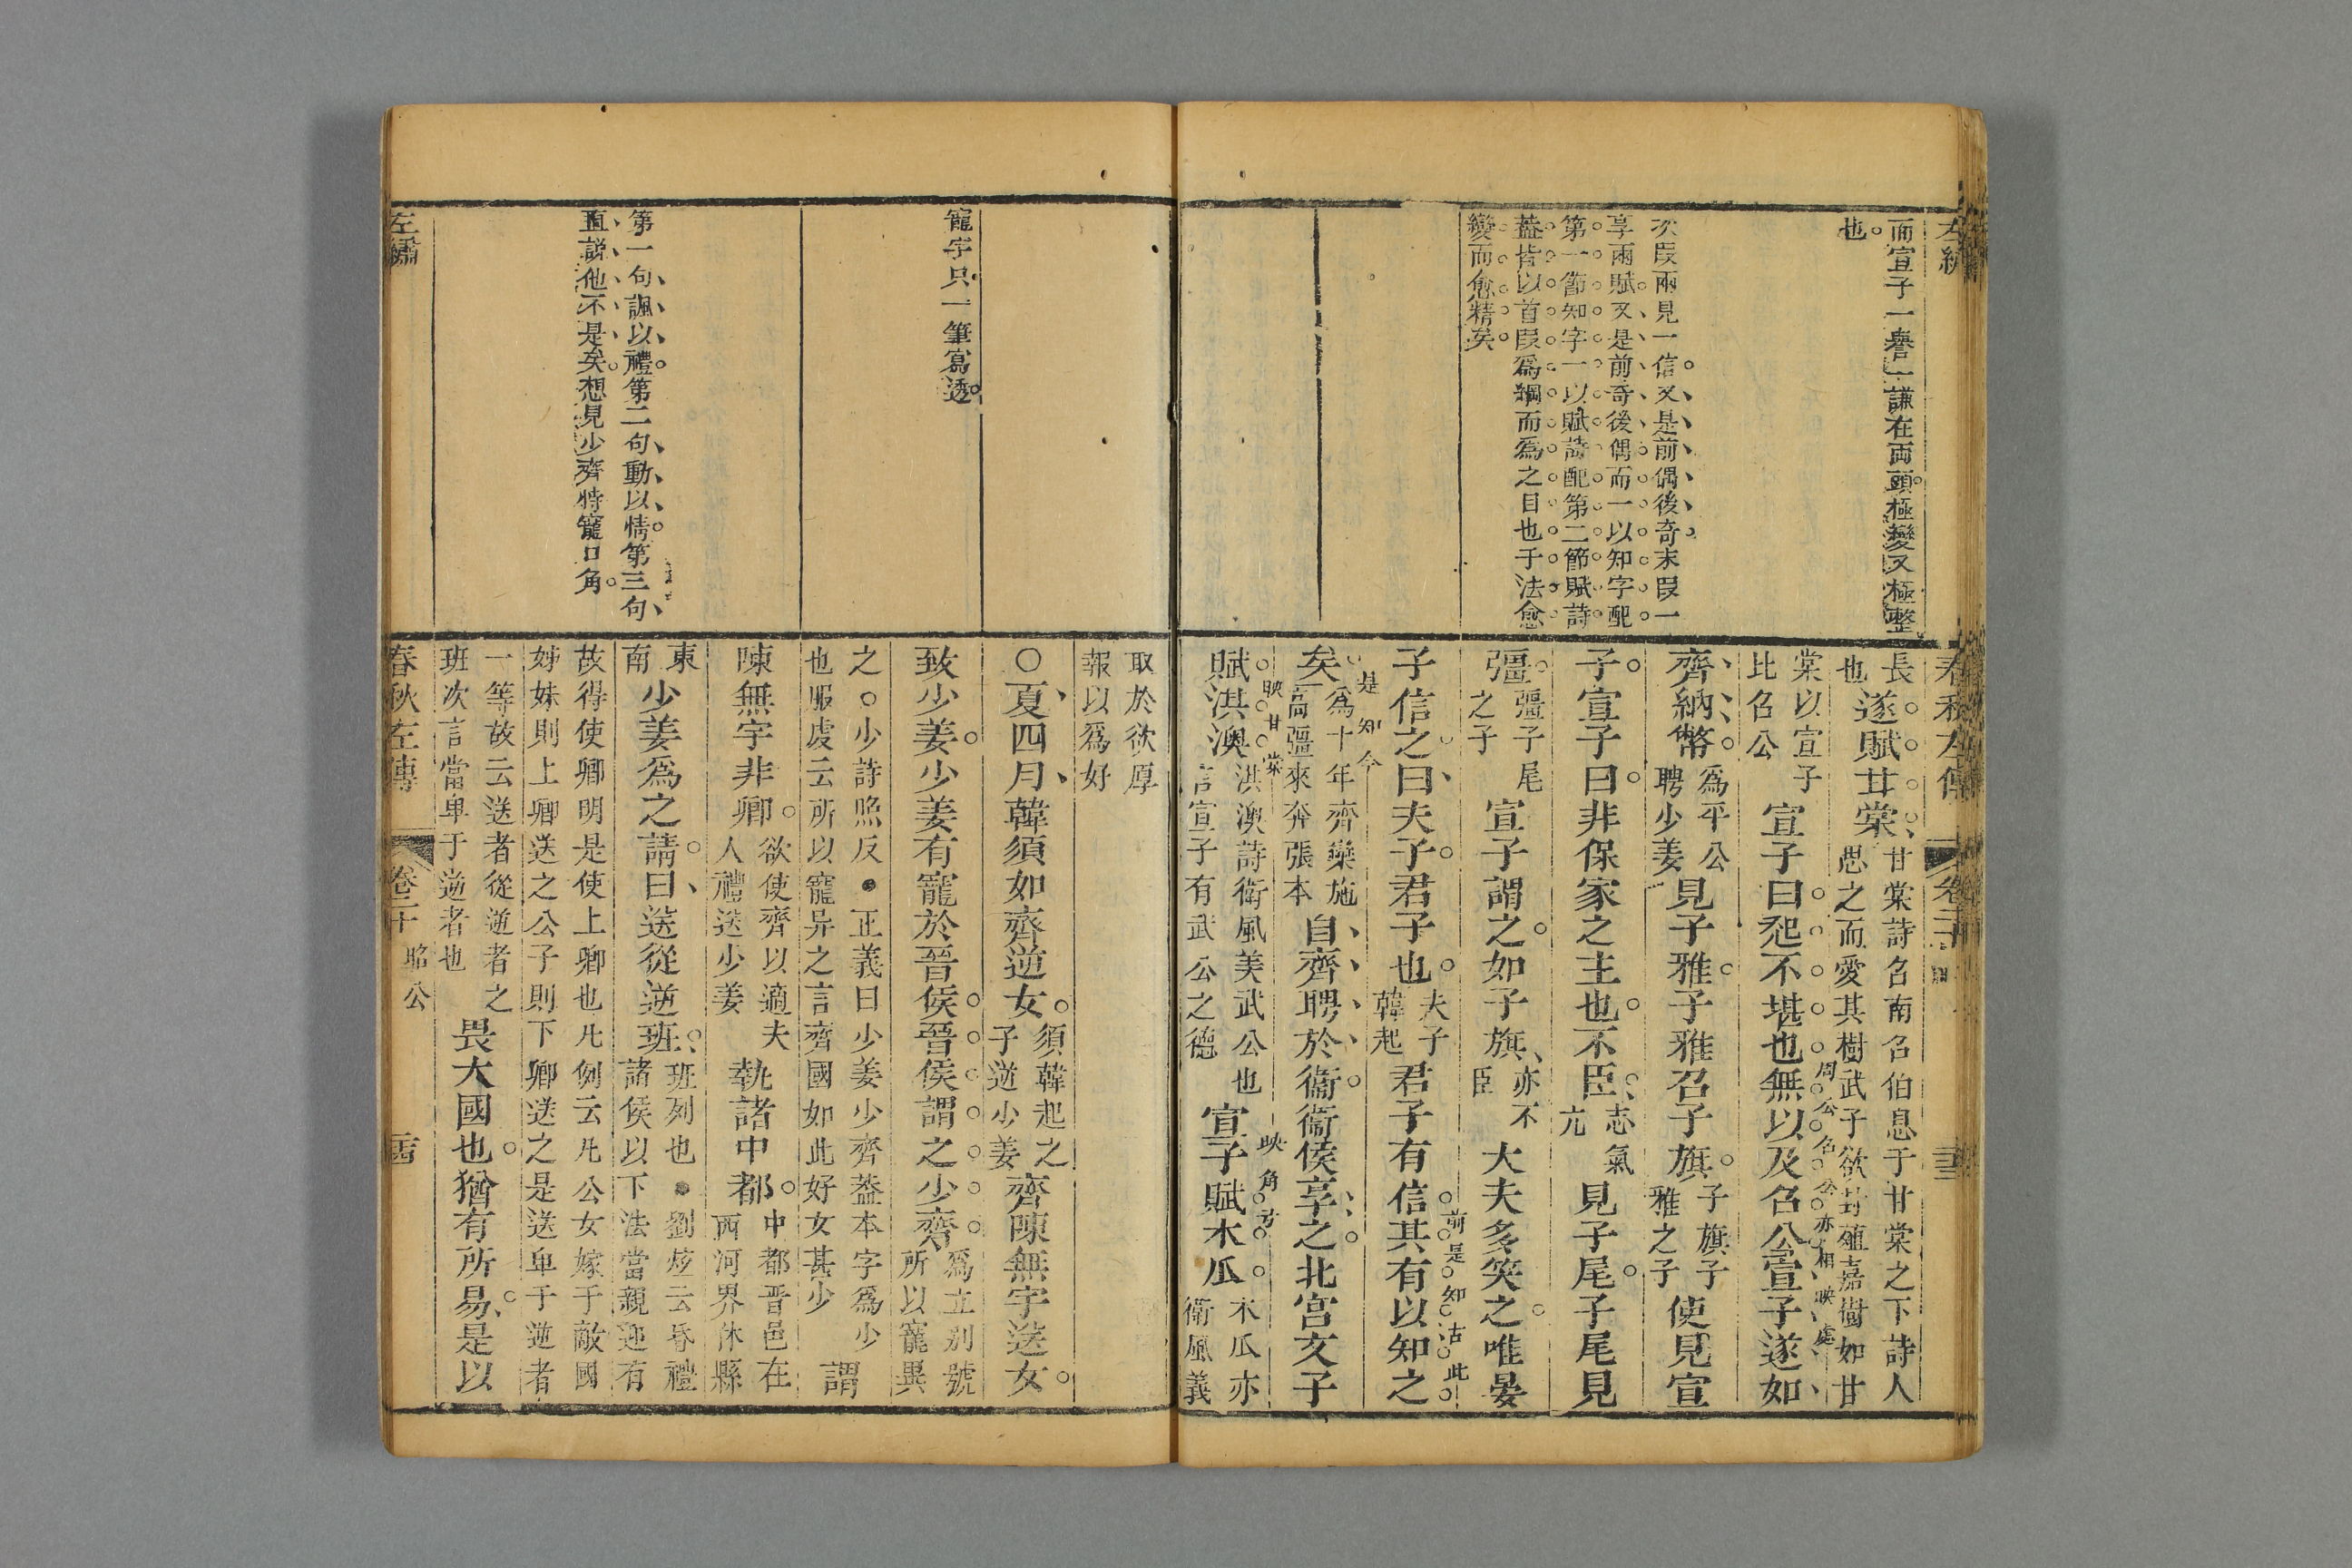 左繡
而宣子一譽一謙在両頭極變又極整
也
次段兩見一信又是前偶後奇末段一
享兩賦又是前奇後偶而一以知字配
第一節知字一以賦詩配第二節賦詩
葢皆以首段爲綱而爲之目也于法愈
變而愈精矣
春秋左傳 卷二十 昭
長也遂賦甘棠甘棠詩召南召伯息于甘棠之下詩人思之而愛其樹武子欲封殖嘉樹如甘
周公召公亦相映處
棠以宣子比召公宣子曰起不堪也無以及召公宣子遂如
齊納幣爲平公聘少姜見子雅子雅召子旗子旗子雅之子使見宣
子宣子曰非保家之主也不臣志氣亢見子尾子尾見
彊彊子尾之子宣子謂之如子旗亦不臣大夫多笑之唯晏
前是知古此
子信之曰夫子君子也夫子韓起君子有信其有以知之
是知今
矣爲十年齊欒施高彊來奔張本自齊聘於衞衞侯享之北宮文子
映甘棠
映角弓
賦淇澳淇澳詩衛風美武公也言宣子有武公之德宣子賦木瓜木瓜亦衛風義
寵字只一筆寫透
第一句諷以禮第二句動以情第三句
直說他不是矣想見少齊特寵口角
左繡
取於欲厚報以爲好
○夏四月韓須如齊逆女須韓起之子逆少姜齊陳無宇送女
致少姜少姜有寵於晉侯晉侯謂之少齊爲立別號所以寵異
之○少詩照反●正義曰少姜少齊葢本字爲少也服虔云所以寵异之言齊國如此好女甚少謂
陳無宇非卿欲使齊以適夫人禮送少姜執諸中都中都晋邑在西河界休縣
東南少姜爲之請曰送從逆班班列也●劉炫云昏禮諸侯以下法當親迎有
故得使卿明是使上卿也凡例云凡公女嫁于敵國姊妹則上卿送之公子則下卿送之是送卑于逆者
一等故云送者從逆者之班次言當卑于逆者也畏大國也猶有所易是以
春秋左傳 卷二十 昭公 茜